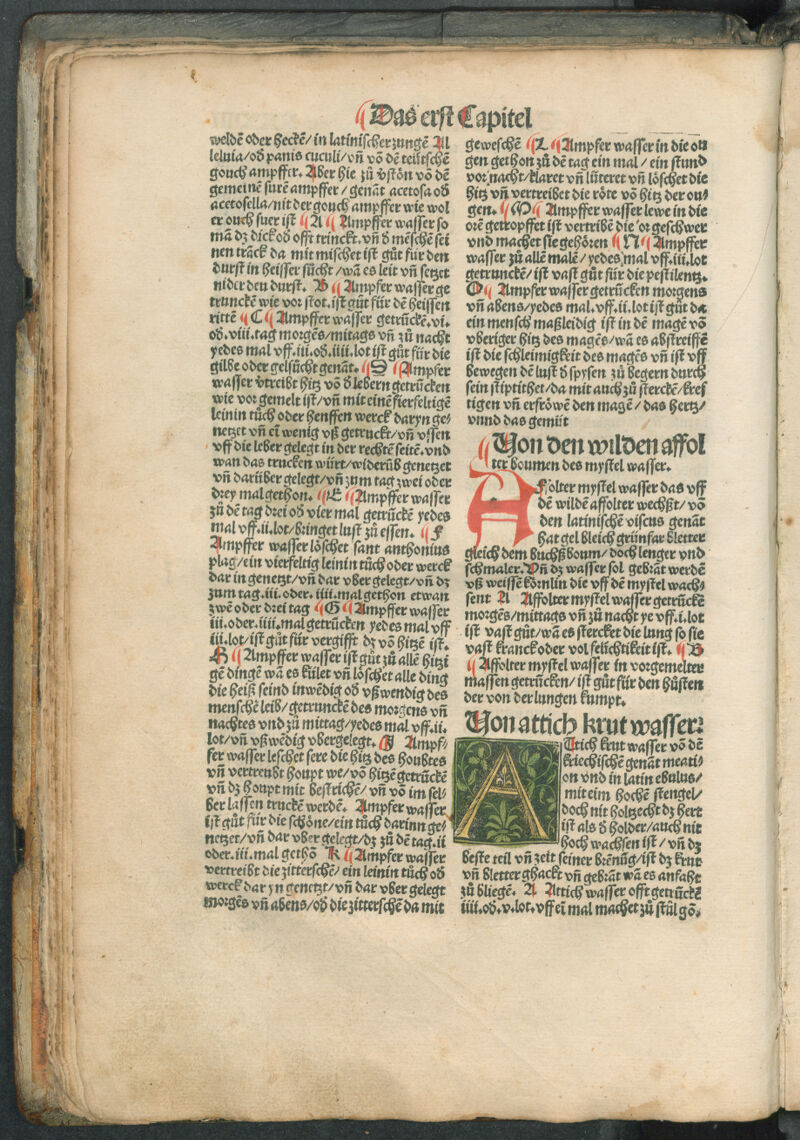 Das erst Capitel
weldē oder heckē/ in latinischer zungē Al
leluia/oď panis cuculi/vn̄ vō dē teütschē
gouch ampffer. Aber hie zů v̄stōn vō dē
gemeinē surē ampffer/ genāt acetosa oď
acetosella/nit der gouch ampffer wie wol
er ouch suer ist A Ampffer wasser so
mā dz dick oď offt trinckt.vn̄ ď mēschē sei
nen trāck da mit mischet ist gůt für den
durst in heisser sůcht/wā es leit vn̄ setzet
nider den durst. B Ampfer wasser ge
trunckē wie vor stot.ist gůt für dē heissen
rittē C Ampffer wasser getrūckē.vi.
oď.viii.tag morgēs/mitags vn̄ zů nacht
yedes mal vff.iii.oď.iiii.lot ist gůt für die
gilbe oder gelsücht genāt. D Ampfer
wasser v̄treibt hitz vō ď lebern getrūcken
wie vor gemelt ist/vn̄ mit einē fierfeltigē
leinin tůch oder henffen werck daryn ge/
netzet vn̄ eī wenig vß getruckt/vn̄ vssen
vff die leber gelegt in der rechtē seitē.vnd
wan das trucken würt/widerūb genetzet
vn̄ darüber gelegt/vn̄ zum tag zwei oder
drey mal gethon. E Ampffer wasser
zů dē tag drei oď vier mal getrūckē yedes
mal vff.ii.lot/bringet lust zů essen. F
Ampffer wasser löschet sant anthonius
plag/ein vierfeltig leinin tůch oder werck
dar in genetzt/vn̄ dar vber gelegt/vn̄ dz
zum tag.iii.oder.iiii.mal gethon etwan
zwē oder drei tag G Ampffer wasser
iii.oder.iiii.mal getrūcken yedes mal vff
iii.lot/ist gůt für vergifft dz vō hitzē ist.
H Ampffer wasser ist gůt zů allē hitzi
gē dingē wā es kület vn̄ löschet alle ding
die heiß seind inwēdig oď vßwendig des
menschē leib/getrunckē des morgens vn̄
nachtes vnd zů mittag/yedes mal vff.ii.
lot/vn̄ vßwēdig vbergelegt. J Ampf/
fer wasser leschet sere die hitz des houbtes
vn̄ vertreibt houpt we/vō hitzē getrūckē
vn̄ dz houpt mit bestrichē/ vn̄ vō im sel/
ber lassen truckē werdē. Ampfer wasser
ist gůt für die schöne/ein tůch darinn ge/
netzet/vn̄ dar vber gelegt/dz zů dē tag.ii
oder.iii.mal gethō K Ampfer wasser
vertreibt die zitterschē/ ein leinin tůch oď
werck dar yn genetzt/vn̄ dar vber gelegt
morgēs vn̄ abens/oď die zitterschē da mit
geweschē L Ampfer wasser in die ou
gen gethon zů dē tag ein mal/ ein stund
vor nacht/klaret vn̄ lüteret vn̄ löschet die
hitz vn̄ vertreibet die röte vō hitz der ou/
gen. M Ampffer wasser lewe in die
orē getropffet ist vertribē die or geschwer
vnd machet sie gehören N Ampffer
wasser zů allē malē/ yedes mal vff.iii.lot
getrunckē/ ist vast gůt für die pestilentz.
O Ampfer wasser getrūcken morgens
vn̄ abens/yedes mal.vff.ii.lot ist gůt da
ein mensch maßleidig ist in dē magē vō
vberiger hitz des magēs/wā es abstreiffē
ist die schleimigkeit des magēs vn̄ ist vff
bewegen dē lust ď spysen zů begern durch
sein stiptithet/da mit auch zů sterckē/kref
tigen vn̄ erfröwē den magē/ das hertz/
vnnd das gemüt
Von den wilden affol
ter boumen des mystel wasser.
Affolter mystel wasser das vff
dē wildē affolter wechßt/ vō
den latinischē viscus genāt
hat gel bleich grünfar bletter
gleich dem buchßboum/ doch lenger vnd
schmaler. Vn̄ dz wasser sol gebrāt werdē
vß weissē körnlin die vff dē mystel wach/
sent A Affolter mystel wasser getrūckē
morgēs/mittags vn̄ zů nacht ye vff.i.lot
ist vast gůt/wā es stercket die lung so sie
vast kranck oder vol feüchtikeit ist. B
Affolter mystel wasser in vorgemelter
massen getrūcken/ ist gůt für den hůsten
der von der lungen kumpt.
Von attich krut wasser:
Attich krut wasser vō dē
kriechischē genāt meati/
on vnd in latin ebulus/
mit eim hochē stengel/
doch nit holtzecht dz hert
ist als ď holder/auch nit
hoch wachsen ist/ vn̄ dz
beste teil vn̄ zeit seiner brēnūg/ist dz krut
vn̄ bletter ghackt vn̄ gebrāt wā es anfaht
zů bliegē. A Attich wasser offt getrūckē
iiii.oď.v.lot.vff eī mal machet zů stůl gō.